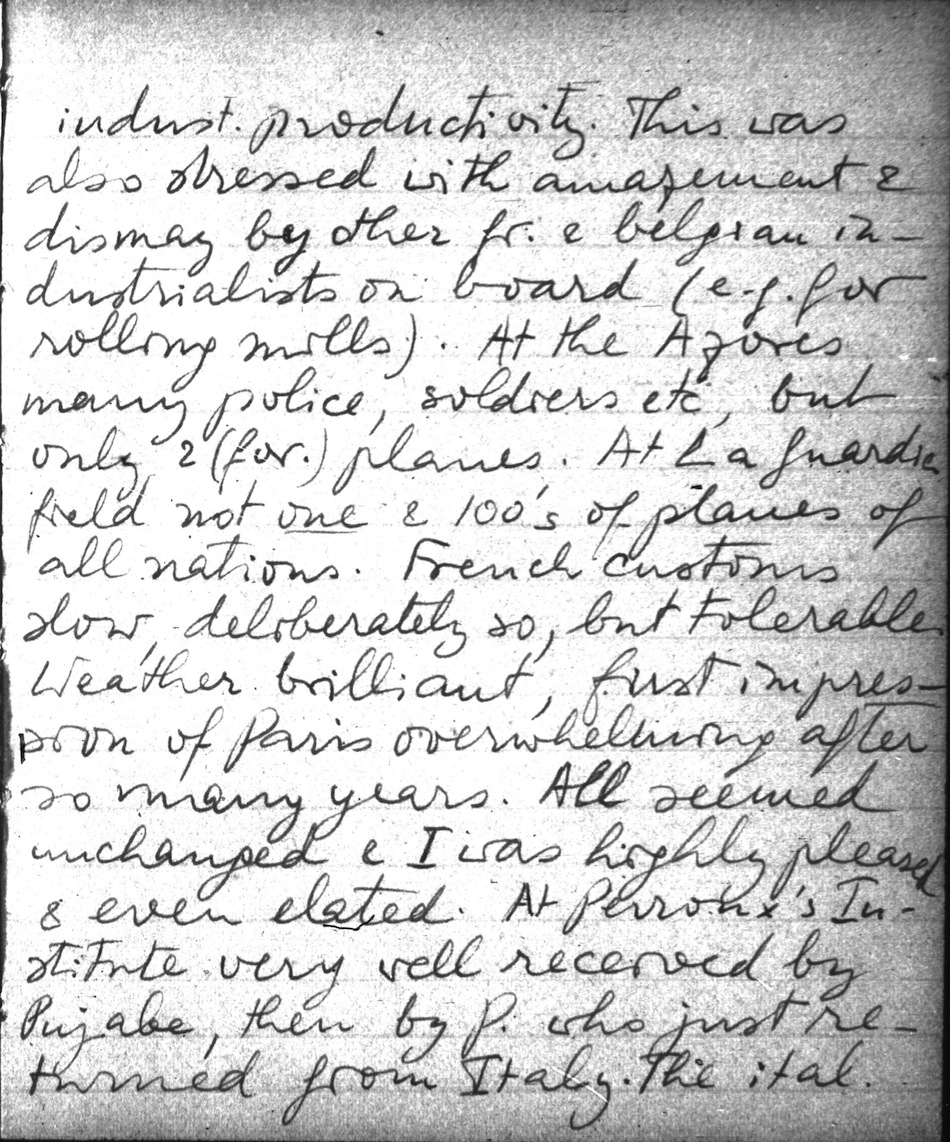 indust. productivity. This was
also stressed with amazement &
dismay by other fr. & belgian in-
dustrialists on board (e.g. for
rolling mills). At the Azores
many police, soldiers etc, but
only 2 (for.) planes. At La Guardia
field not one & 100's of planes of
all nations. French customs
slow, deliberately so, but tolerable.
Weather brilliant, first impres-
sion of Paris overwhelming after
so many years. All seemed
unchanged & I was highly pleased
& even elated. At Perroux's In-
stitute very well received by
Pujabe, then by P. who just re-
turned from Italy. The ital.